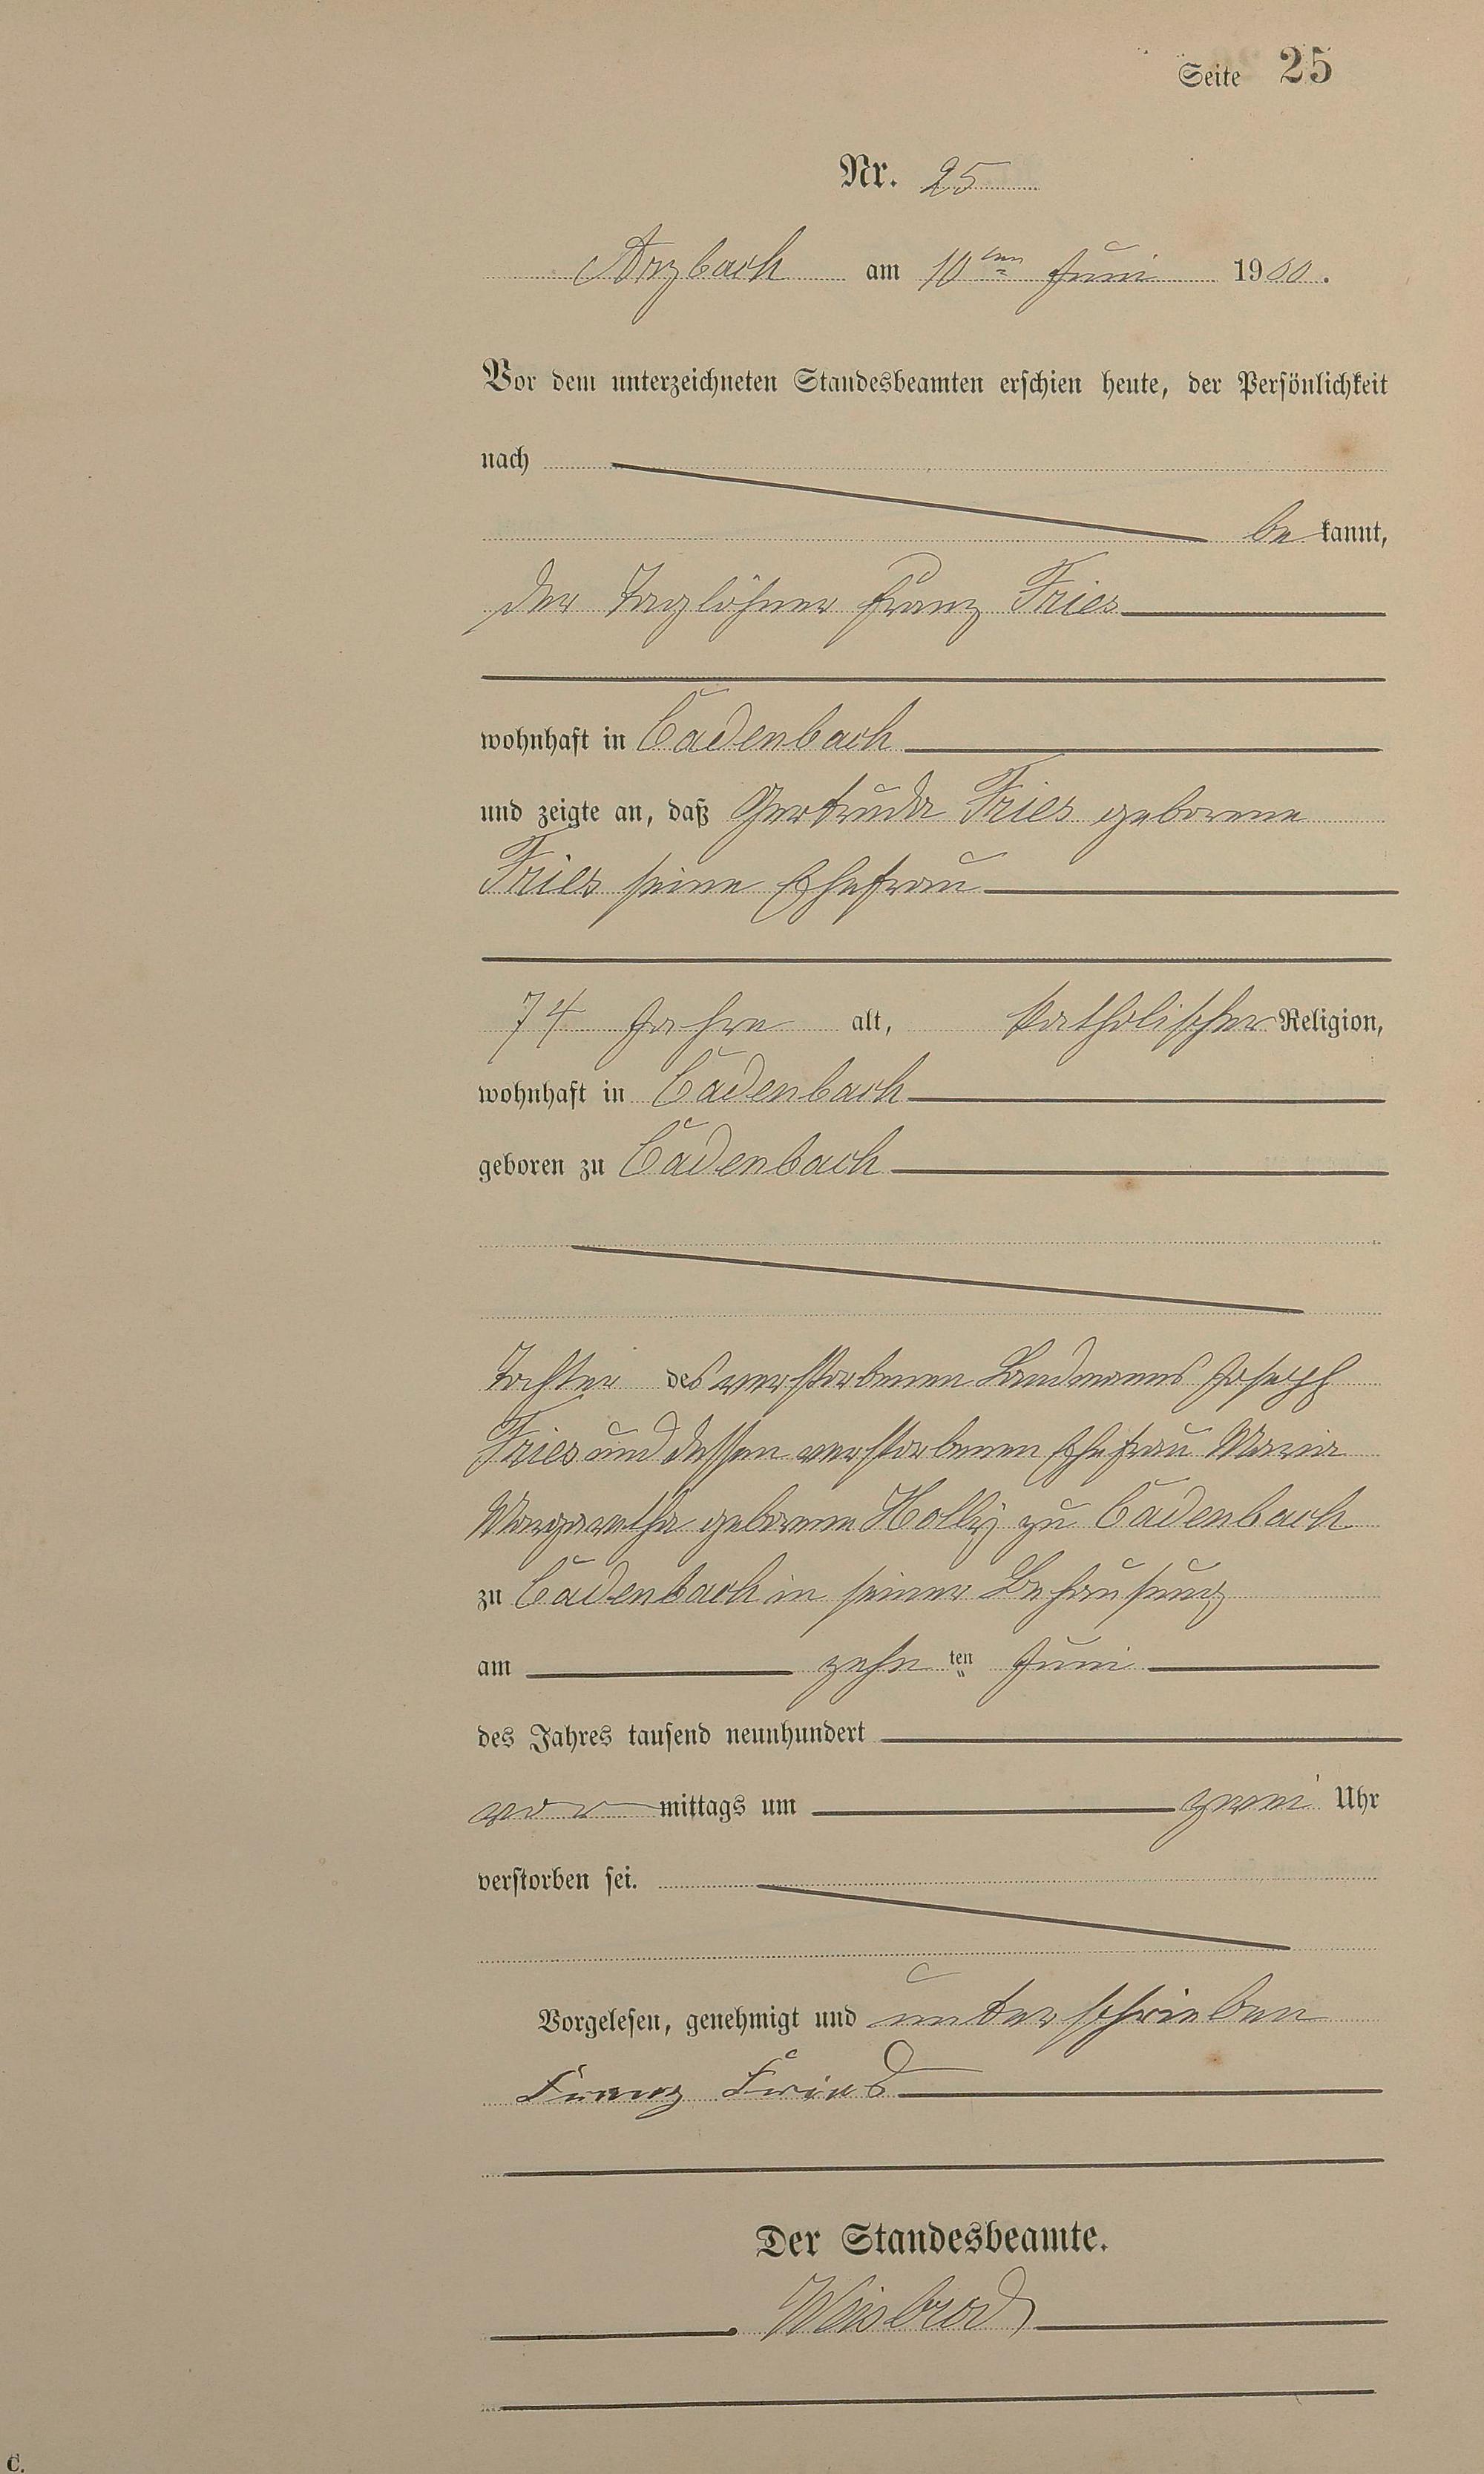 Seite 25
Nr. 25
Arzbach am 10ten Juni 1900.
Vor dem unterzeichneten Standesbeamten erschien heute, der Persönlichkeit
nach
be kannt,
der Taglöhner Franz Fries
wohnhaft in Cadenbach
und zeigte an, daß Gertruda Fries geborene
Fries seine Ehefrau
74 Jahre alt, katholischer Religion,
wohnhaft in Cadenbach
geboren zu Cadenbach
Tochter des verstorbenen Landmanns Joseph
Fries und dessen verstorbenen Ehefrau Maria
Margaretha geborene Holly zu Cadenbach
zu Cadenbach in seiner Behausung
am zehn ten Juni
des Jahres tausend neunhundert
vor mittags um zwei Uhr
verstorben sei.
Vorgelesen, genehmigt und unterschrieben
Franz Fries
Der Standesbeamte.
Weisbrod
C.